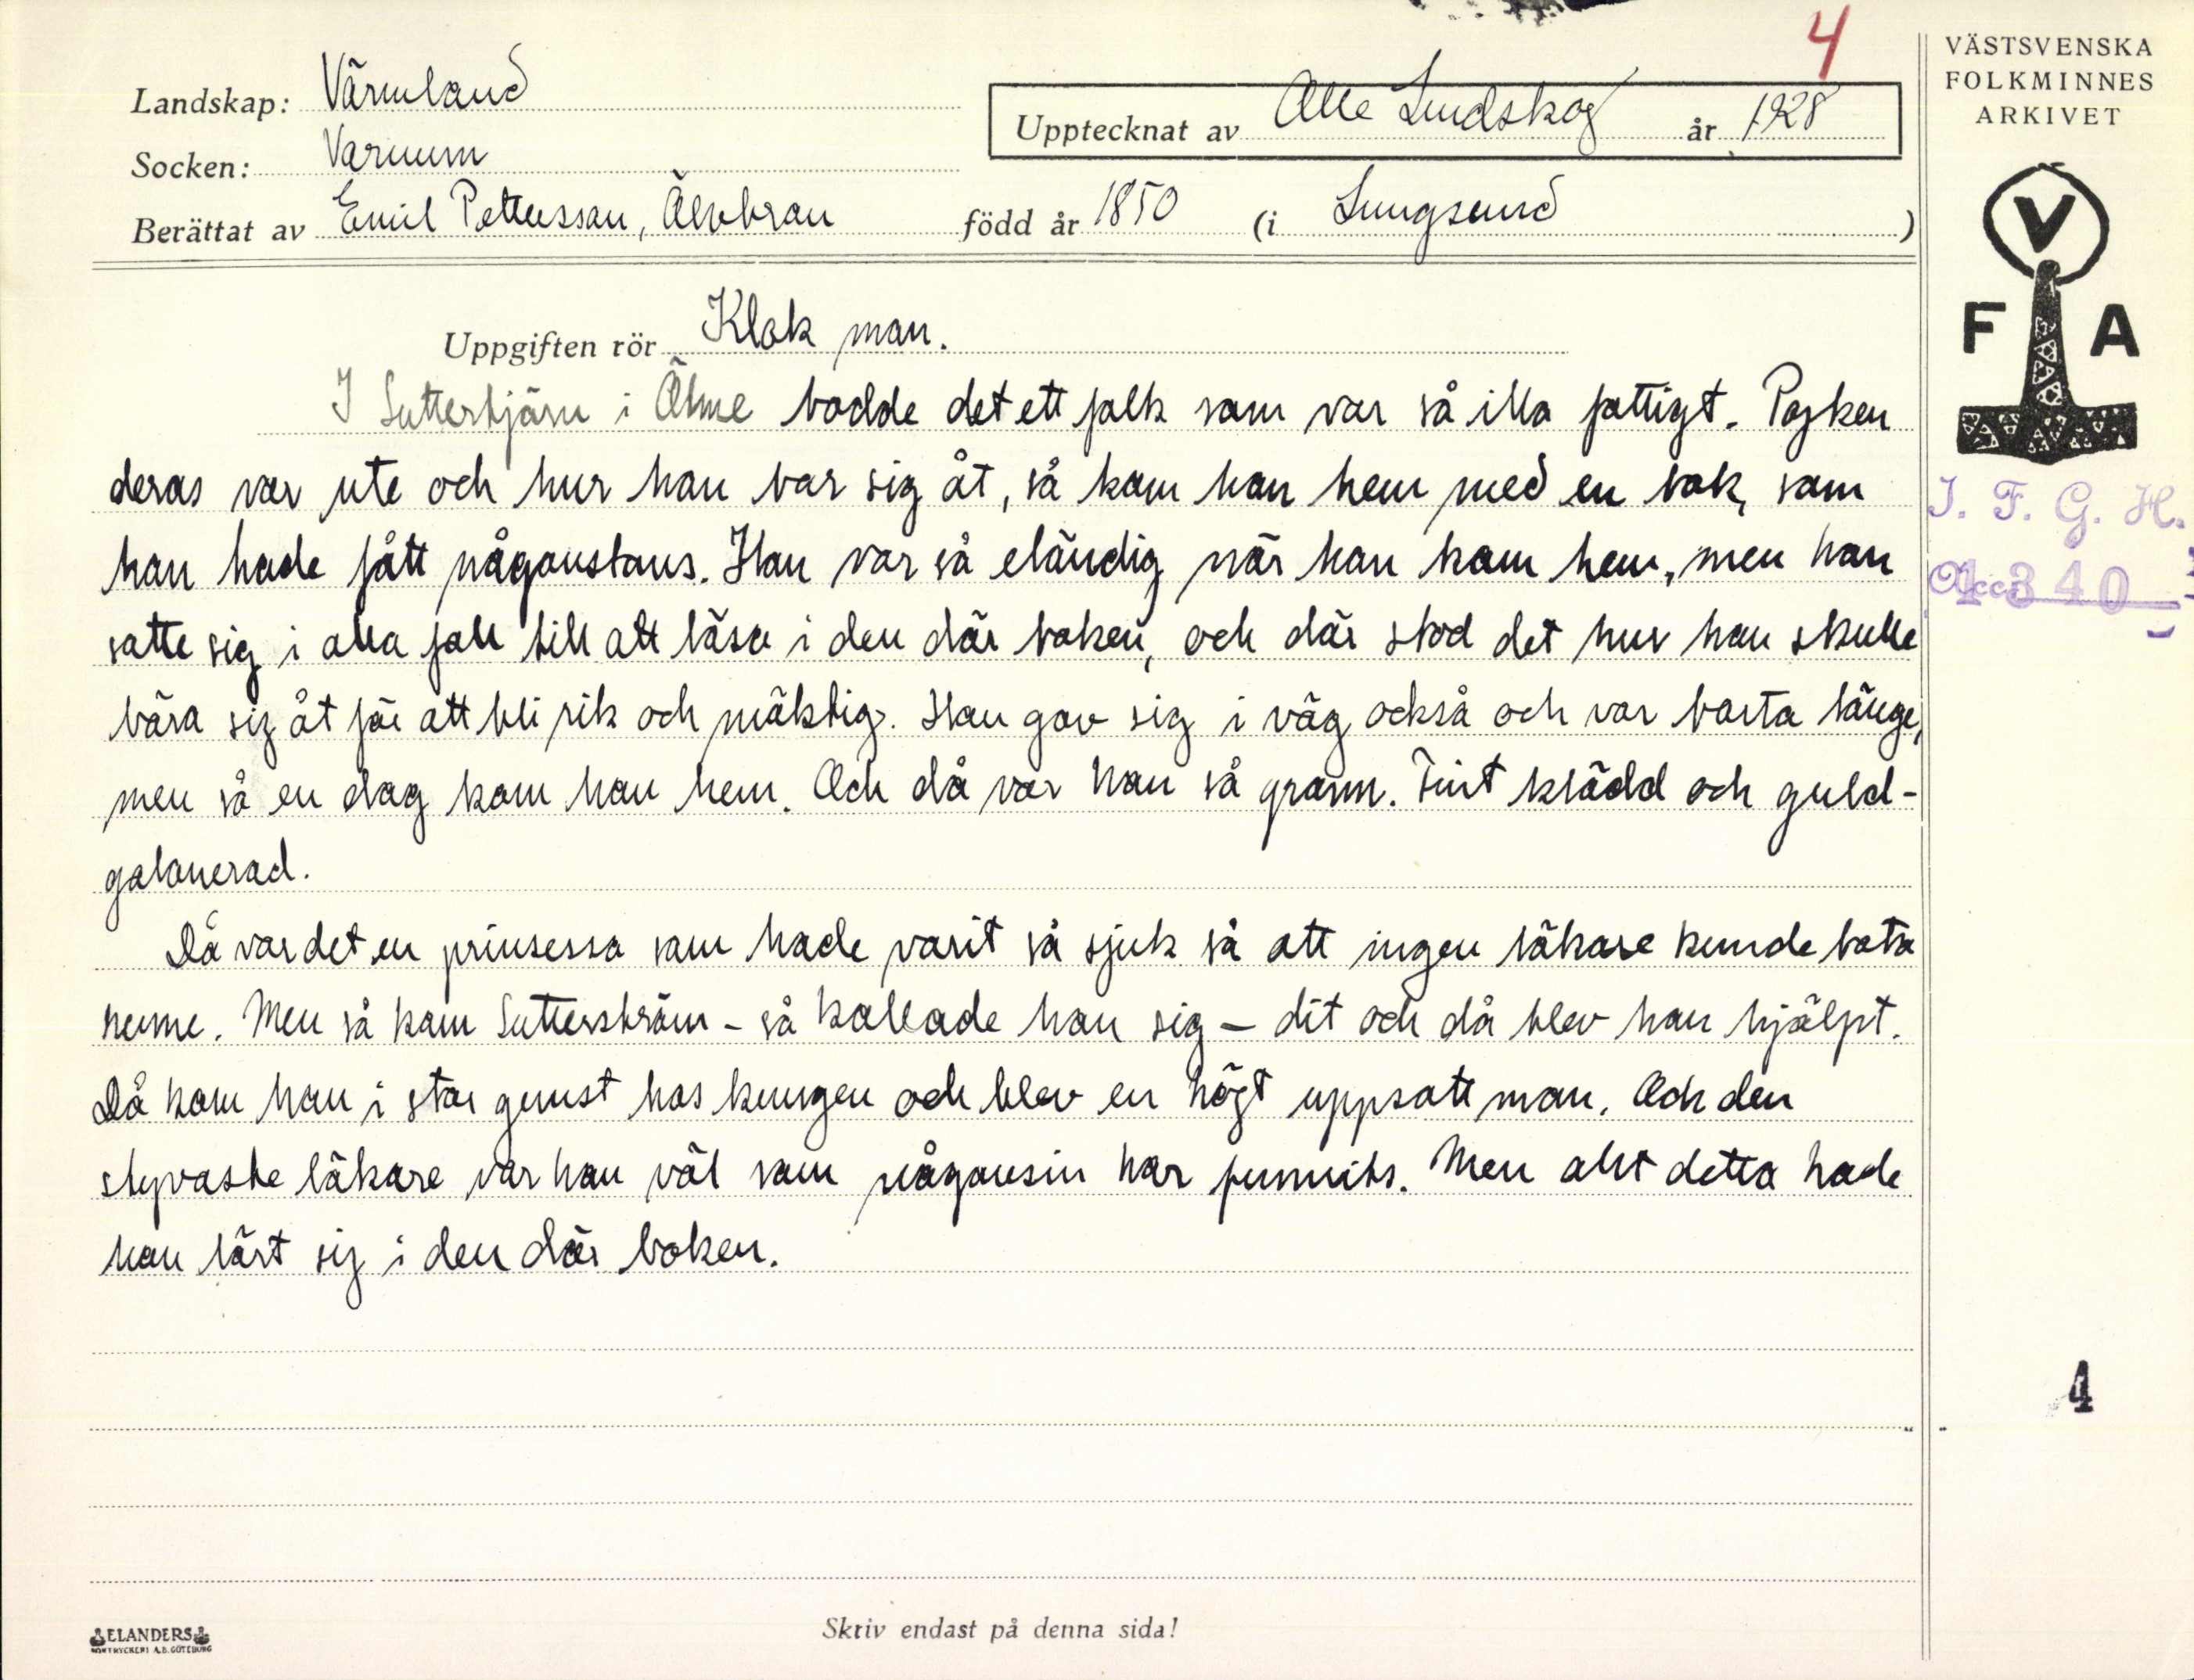 4
VÄSTSVENSKA
FOLKMINNES
ARKIVET
Landskap: Värmland
Upptecknat av Olle Lindskog år 1928
Socken: Varnum
Berättat av Emil Pettersson, Älvbron född år 1850 (i Lungsund)
V
F A
Uppgiften rör Klok man.
I Suttertjärn i Ölme bodde det ett folk som var så illa fattigt. Pojken
deras var ute och hur han bar sig åt, så kom han hem med en bok, som
I. F. G. H.
han hade fått någonstans. Han var så eländig när han kom hem, men han
Acc. 1340
satte sig i alla fall till att läsa i den där boken, och där stod det hur han skulle
bära sig åt för att bli rik och mäktig. Han gav sig i väg också och var borta länge,
men så en dag kom han hem. Och då var han så grann. Fint klädd och guld-
galonerad.
Då var det en prinsessa som hade varit så sjuk så att ingen läkare kunde bota
henne. Men så kom Sutterström - så kallade han sig - dit och då blev hon hjälpt.
Då kom han i stor gunst hos kungen och blev en högt uppsatt man. Och den
styvaste läkare var han väl som någonsin har funnits. Men allt detta hade
han lärt sig i den där boken.
4
ELANDERS
BOKTRYCKERI A.B. GÖTEBORG
Skriv endast på denna sida!